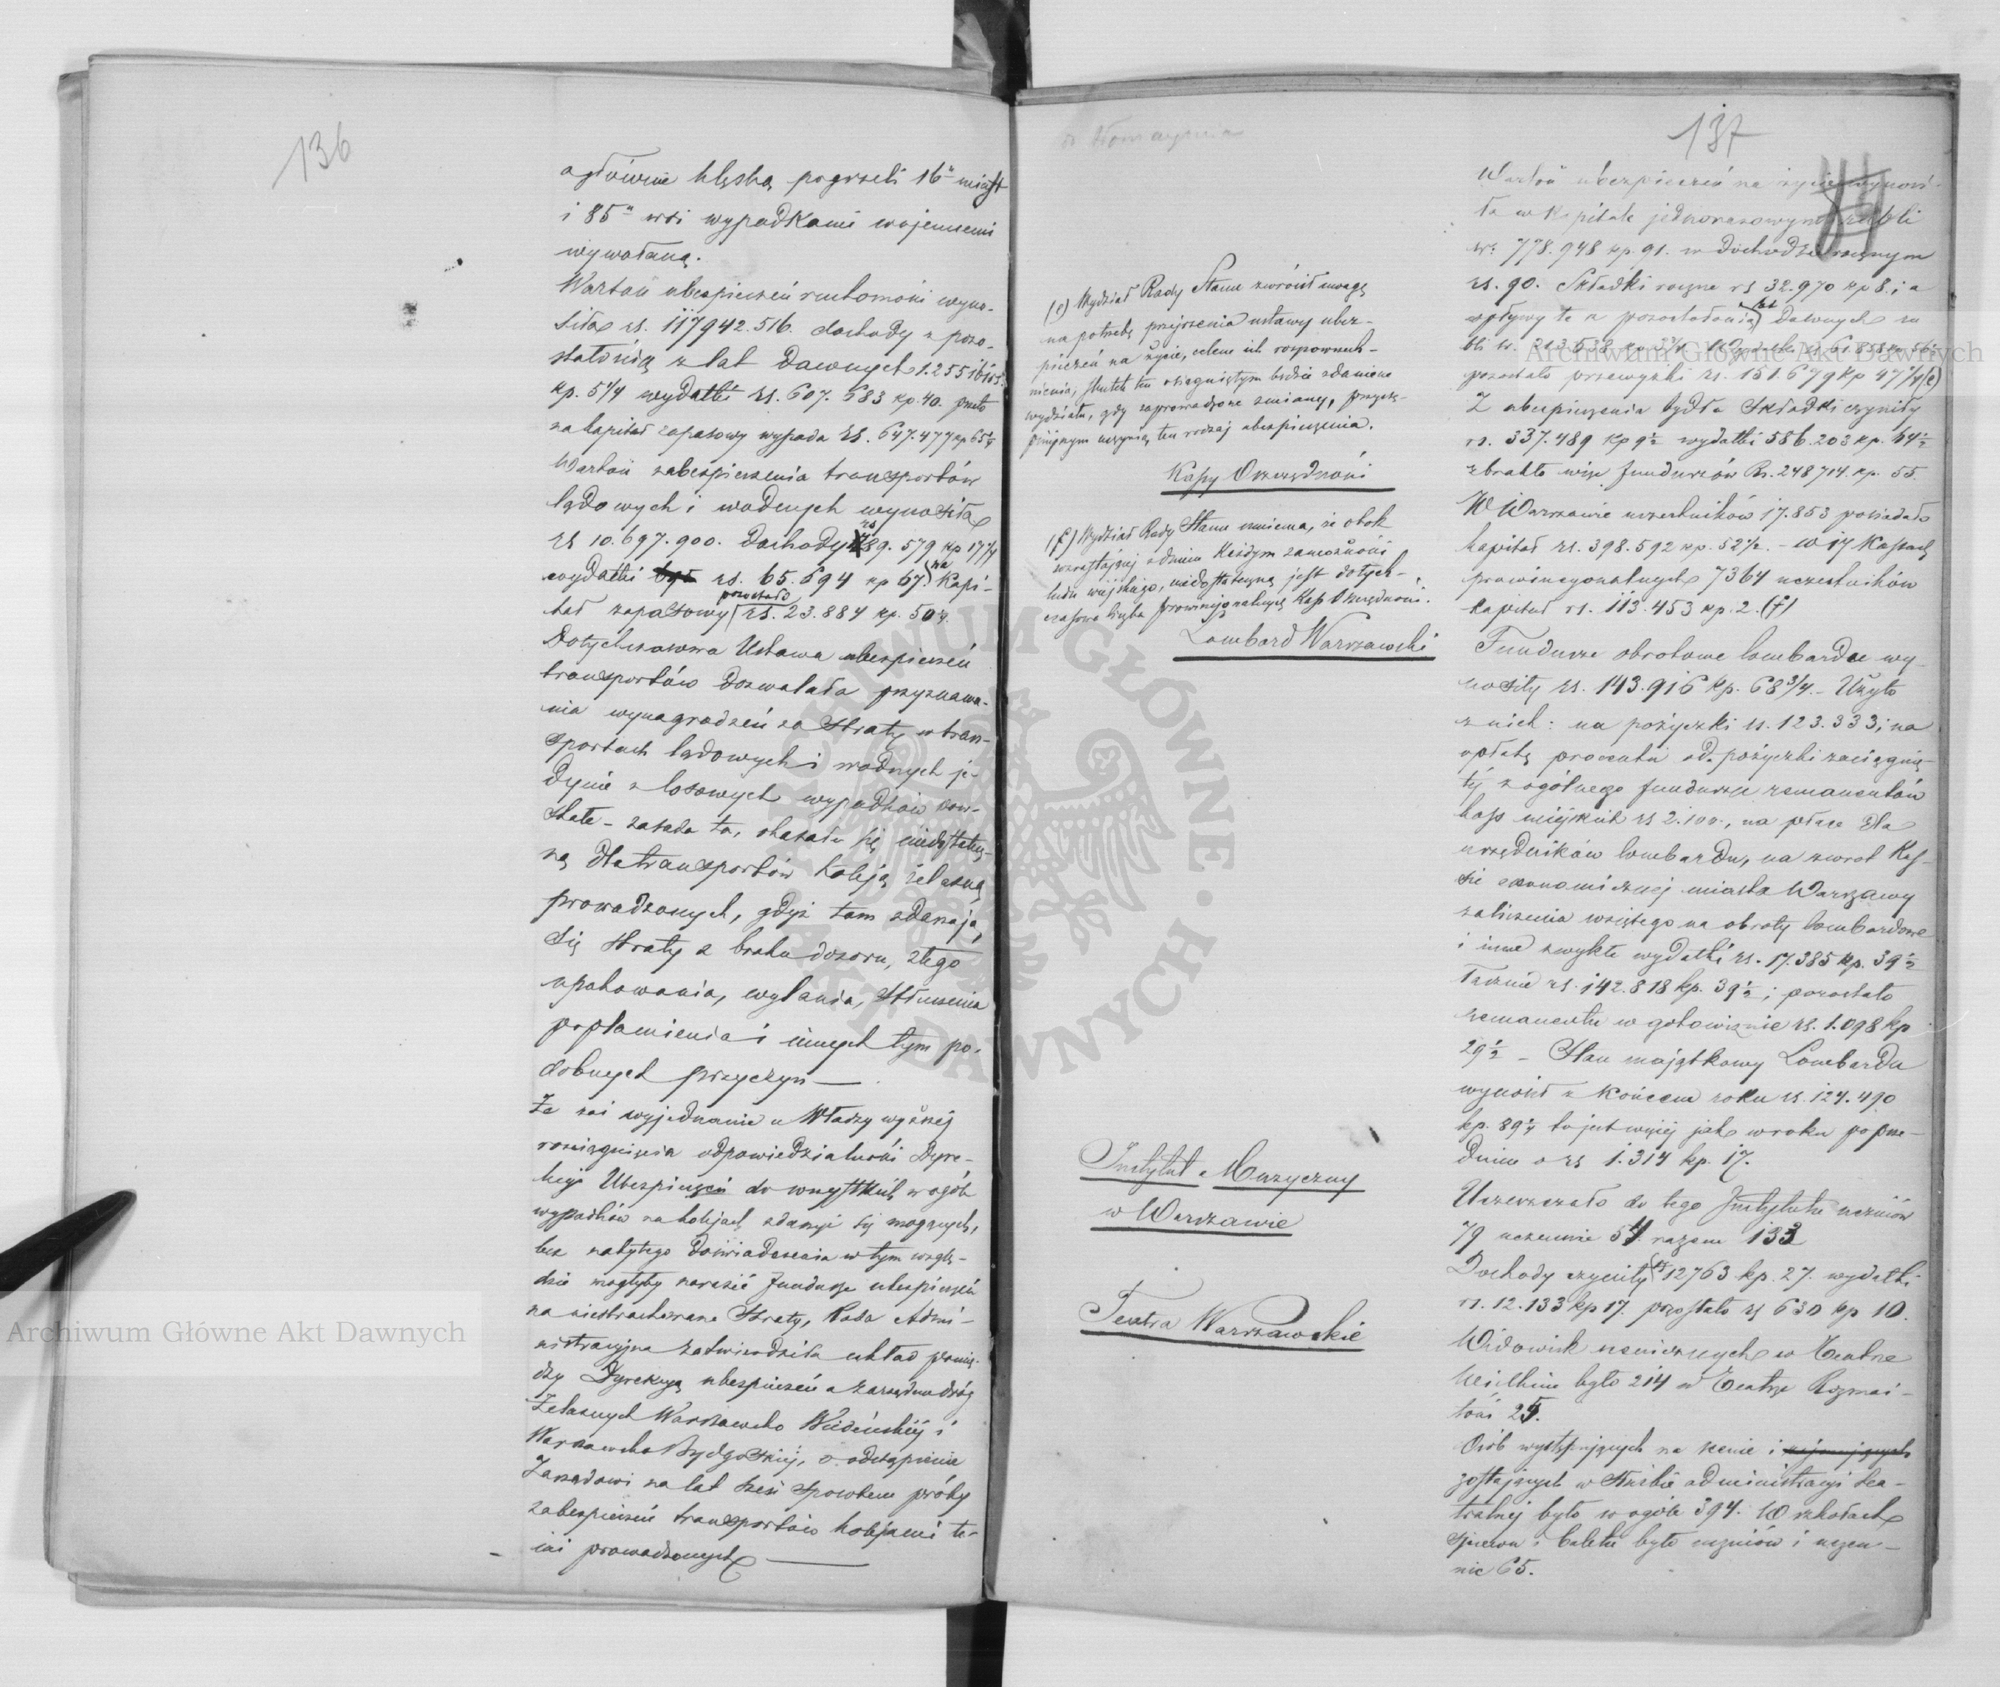 136
a głównie klęską pogorzeli 16u miast
i 85u wsi wypadkami wojennemi
wywołaną.
Wartość ubezpieczeń ruchomości wyno-
siła rs. 117942.516. dochody z pozo-
stałością z lat dawnych 1.255
kp. 5 1/4 wydatki rs. 607.683 kp. 40. przeto
na kapitał zapasowy wypada rs. 647.477 kp 65 1/4
Wartość zabezpieczenia transportów
lądowych i wodnych wynosiła
rs 10.697.900. dochody rs 89.579 kp 17 1/4
wydatki rs. 65.694 kp 67. na kapi-
tał zapasowy pozostało rs. 23.884 kp. 50 1/4.
Dotychczasowa Ustawa ubezpieczeń
transportów dozwalała przyznawa-
nia wynagrodzeń za straty w tran-
sportach lądowych i wodnych je-
dynie z losowych wypadków pow-
stałe – zasada ta, okazała się niedostatecz-
ną dla transportów koleją żelazną
prowadzonych, gdyż tam zdarzają
się straty z braku dozoru, złego
opakowania, wylania, stłuczenia
poplamienia i innych tym po-
dobnych przyczyn —
Że zaś wyjednanie u Władzy wyższej
rozciągnięcia odpowiedzialności Dyre-
kcyi Ubezpieczeń do wszystkich w ogóle
wypadków na kolejach zdarzyć się mogących,
bez nabytego doświadczenia w tym wzglę-
dzie mogłyby narazić fundusze ubezpieczeń
na niestrachowane straty, Rada Admi-
nistracyjna zatwierdziła układ pomię-
dzy Dyrekcyą ubezpieczeń a Zarządem dróg
Żelaznych Warszawsko Wiedeńskiej i
Warszawsko Bydgoskiej, o odstąpienie
Zarządowi na lat sześć sposobem próby
zabezpieczeń transportów kolejami te-
mi prowadzonych —
137
(e) Wydział Rady Stanu zwrócił uwagę
na potrzebę przejrzenia ustawy ubez-
pieczeń na życie, celem ich rozpowszech-
nienia, skutek ten osiągniętym będzie zdaniem
wydziału, gdy zaprowadzone zmiany, przys-
tępnym uczynią ten rodzaj ubezpieczenia.
Kasy Oszczędności
(f) Wydział Rady Stanu mniema, że obok
wzrastającej z dniem każdym zamożności
ludu wiejskiego, niedostateczną jest dotych-
czasowa liczba prowincyonalnych Kas Oszczędności.
Lombard Warszawski
Instytut Muzyczny
w Warszawie
Teatra Warszawskie
Wartość ubezpieczeń na życie wynosi-
ła w kapitale jednorazowym rubli
sr. 778.948 kp. 91. w dochodzie rocznym
rs. 90. Składki roczne rs 32.970 kp 8. i a
wpływy te z pozostałością z lat dawnych ru
bli sr. 213.538 kp.
pozostało przewyżki rs. 151.679 kp 47 1/4 (e)
Z ubezpieczenia bydła składki czyniły
rs. 337.489 kp 9 1/2 wydatki 586.203 kp. 64 1/2
zbrakło więc funduszów Rs. 248714. kp. 55.
W Warszawie uczestników 17.853 posiadało
kapitał rs. 398.592 kp. 52 1/2. – w 14 Kasach
prowincyonalnych 7364 uczestników
kapitał rs. 113.453 kp. 2. (f)
Fundusze obrotowe lombardu wy-
nosiły rs. 143.916 kp. 68 3/4. – Użyto
z nich: na pożyczki rs. 123.333; na
opłatę procentu od pożyczki zaciągnię-
tej z ogólnego funduszu remanentów
kass miejskich rs 2.100., na płace dla
urzędników lombardu, na zwrot Kas-
sie ekonomicznej miasta Warszawy
zaliczenia wziętego na obroty lombardowe
i inne zwykłe wydatki rs. 17.385 kp. 39 1/2
razem rs. 142.818 kp. 39 1/2; pozostało
remanentu w gotowiznie rs. 1.098 kp
29 1/2 – Stan majątkowy Lombardu
wynosił z końcem roku rs. 124.490
kp. 89 1/4 to jest więcej jak w roku poprze-
dnim o rs 1.314 kp. 17.
Uczęszczało do tego Instytutu uczniów
79 uczennic 54. razem 133
Dochody czyniły rs 12763 kp. 27. wydatki
rs. 12.133 kp 17. pozostało rs 630 kp 10.
Widowisk scenicznych w Teatrze
Wielkim było 214 w Teatrze Rozmai-
tości 25.
Osób występujących na scenie i zajmujących
zostających w służbie administracyi tea-
tralnej było w ogóle 394. W szkołach
śpiewu i baletu było uczniów i uczen-
nic 65.
Archiwum Główne Akt Dawnych
Archiwum Główne Akt Dawnych
ARCHIWUM GŁÓWNE · AKT DAWNYCH ·